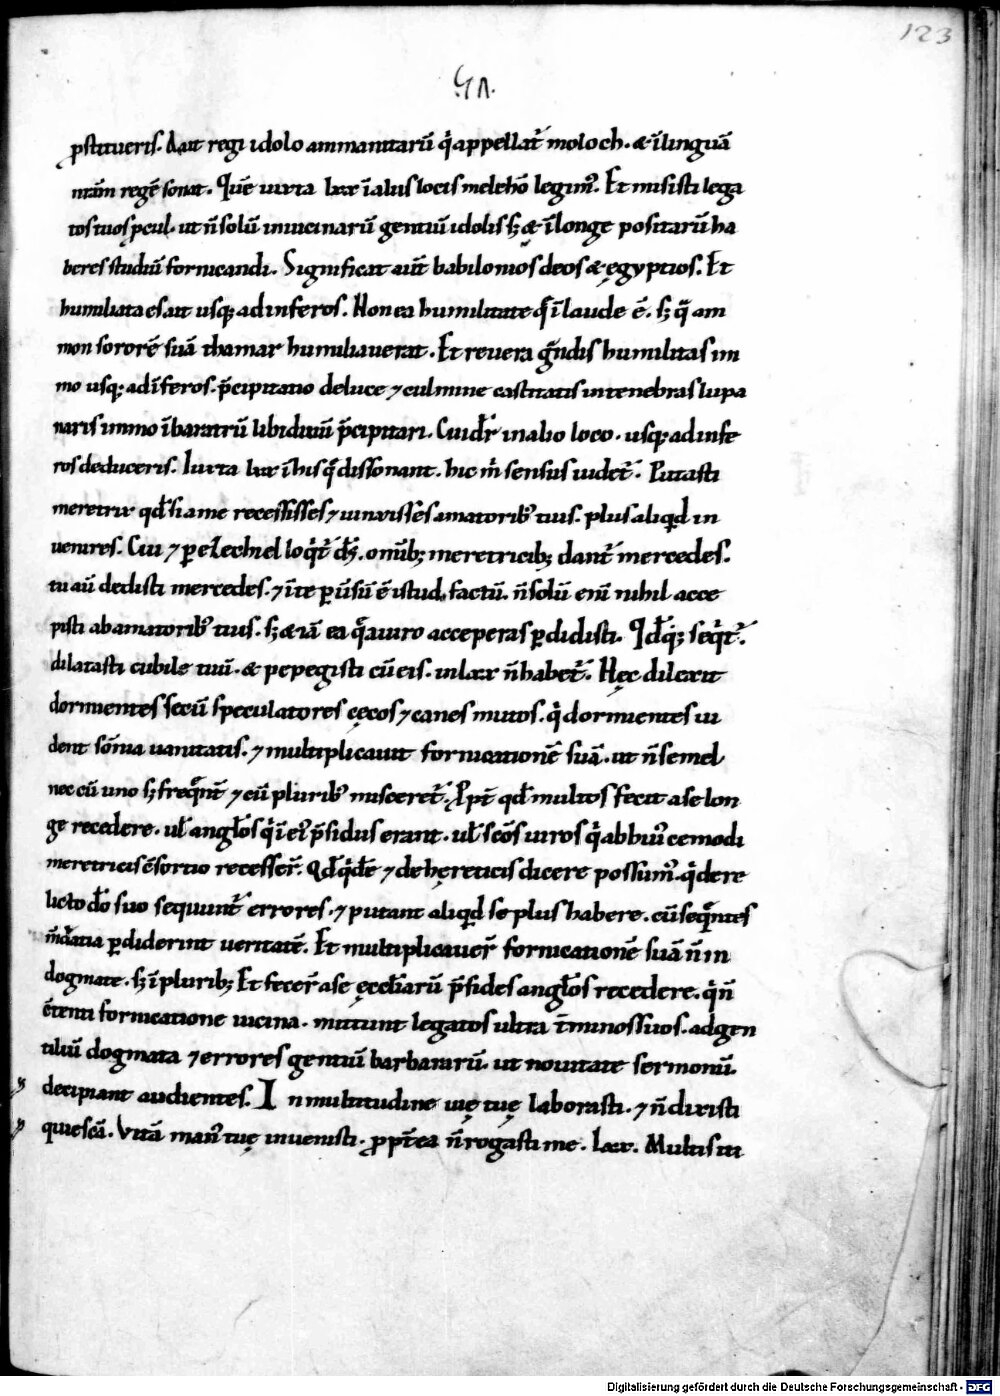 123
ꝓstitueris. Aut regi idolo ammanitarū q̇ appellat᷑ moloch. & īlinguā
nr̄am regē sonat. Quē iuxta lxx ī alus locis melchō legim᷒. Et misisti lega
tos tuos ꝓcul. ut n̄ solū in uicinarū gentiū idolis sꝫ & ī longe positarū ha
beres studiū fornicandi. Significat aut̄ babilonios deos & ęgyptios. Et
humiliata es ait usq; ad inferos. Non ea humilitate q̄ ī laude ē. sꝫ q̄ am
mon sororē suā thamar humiliauerat. Et reuera gͣndis humilitas im
mo usq; ad īferos. p̄cipitatio de luce ⁊ culmine castitatis in tenebras lupa
naris immo ī baratrū libidinū p̄cipitari. Cui dr̄ in alio loco. usq; ad infe
ros deduceris. Iuxta lxx ī his q̄ dissonant. hic m̄ sensus uidet᷑. Putasti
meretrix qd̄ si a me recessisses ⁊ iunxisses amatorib᷒ tuis. plus aliqd̄ in
uenires. Cui ⁊ ꝑ ezechiel loqͥt᷑ d̄s. omīb; meretricib; dant᷑ mercedes.
tu aū dedisti mercedes. ⁊ ī te ꝑuersū ē istud factū. n̄ solū enī nihil acce
pisti ab amatorib᷒ tuis. sꝫ & iā ea q̄ a uiro acceperas ꝑdidisti. Qd̄q; seqͥt᷑.
dilatasti cubile tuū. & pepegisti cū eis. in lxx n̄ habet᷑. Hęc dilexit
dormientes secū speculatores cęcos ⁊ canes mutos. q̇ dormientes ui
dent sōnia uanitatis. ⁊ multiplicauit fornicationē suā. ut n̄ semel
nec cū uno sꝫ freqͣnt᷑ ⁊ cū plurib᷒ misceret᷑. Ꝓpt᷑ qd̄ multos fecit a se lon
ge recedere. ul̄ angl̄os q̇ ī ei᷒ p̄sidiis erant. ul̄ sc̄os uiros q̇ ab hui᷒cemodi
meretricis c̄sortio recesser̄. Qd̄ qͥdē ⁊ de hęreticis dicere possum᷒. q̇ dere
licto d̄o suo sequunt᷑ errores. ⁊ putant aliqd̄ se plus habere. cū seqͣntes
m̄datia ꝑdiderint ueritatē. Et multiplicauer̄ fornicationē suā n̄ in
dogmate. sꝫ ī plurib; Et fecer̄ a se ęccl̄iarū p̄sides angl̄os recedere. q̇ n̄
c̄tenti fornicatione uicina. mittunt legatos ultra t᷑minos suos. ad gen
tiliū dogmata ⁊ errores gentiū barbararū. ut nouitate sermonū
decipiant audientes. In multitudine uię tuę laborasti. ⁊ n̄ dixisti
quiescā. Vitā man᷒ tuę inuenisti. ꝓpt᷑ea n̄ rogasti me. lxx. Multis ui
Digitalisierung gefördert durch die Deutsche Forschungsgemeinschaft - DFG